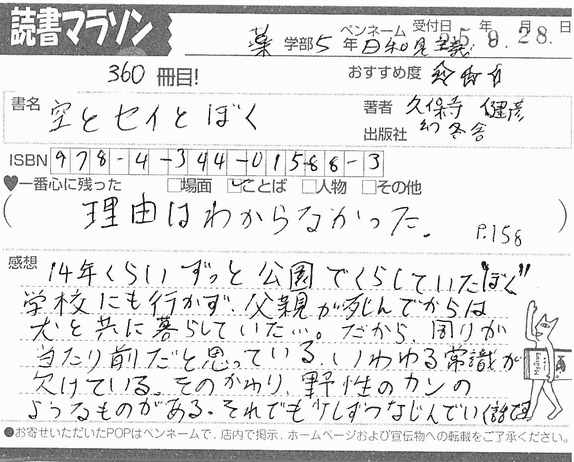 読書マラソン
ペンネーム 受付日 年 月 日
薬 学部 5 年 日和見主義 25. 9. 28.
360 冊目! おすすめ度 ☆☆☆
書名 空とセイとぼく
著者 久保寺 健彦
出版社 幻冬舎
ISBN 978-4-344-01588-3
♥一番心に残った □場面 ☑ことば □人物 □その他
(理由はわからなかった。 P.158)
感想 14年くらいずっと公園でくらしていた"ぼく"
学校にも行かず、父親が死んでからは
犬と共に暮らしていた…。だから、周りが
当たり前だと思っている、いわゆる常識が
欠けている。そのかわり、野性のカンの
ようなものがある。それでも少しずつなじんでい
●お寄せいただいたPOPはペンネームで、店内で掲示、ホームページおよび宣伝物への転載をご了承ください。